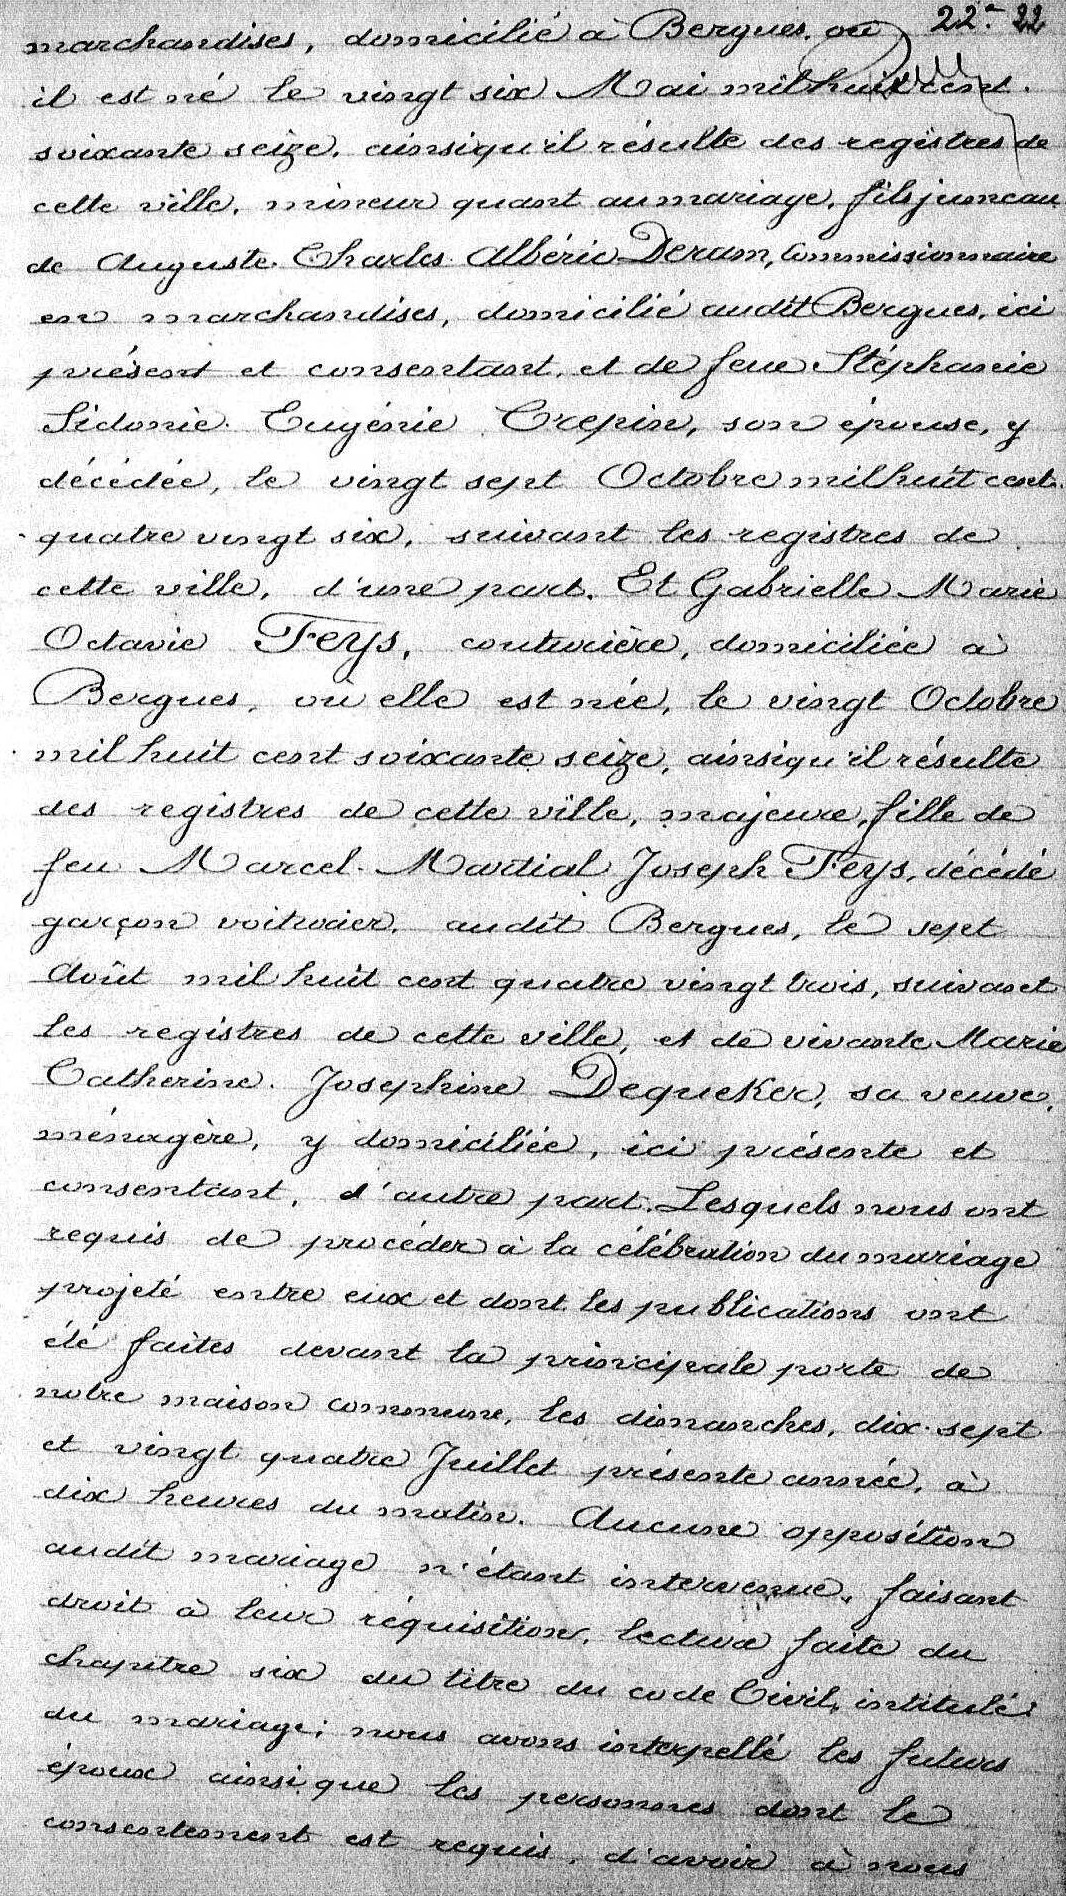 22e 22
marchandises, domicilié à Bergues, où
il est né le vingt six Mai mil huit cent
soixante seize, ainsiqu'il résulte des registres de
cette ville, mineur quant au mariage, fils jumeau
de Auguste Charles Albéric Deram, Commissionnaire
en marchandises, domicilié audit Bergues, ici
présent et consentant, et de feue Stéphanie
Sidonie Eugénie Crepin, son épouse, y
décédée, le vingt sept Octobre mil huit cent
quatre vingt six, suivant les registres de
cette ville, d'une part. Et Gabrielle Marie
Octavie Feys, couturière, domiciliée à
Bergues, où elle est née, le vingt Octobre
mil huit cent soixante seize, ainsiqu'il résulte
des registres de cette ville, majeure, fille de
feu Marcel Martial Joseph Feys, décédé
garçon voiturier, audit Bergues, le sept
Août mil huit cent quatre vingt trois, suivant
les registres de cette ville, et de vivante Marie
Catherine Josephine Dequeker, sa veuve,
ménagère, y domiciliée, ici présente et
consentant, d'autre part. Lesquels nous ont
requis de procéder à la célébration du mariage
projeté entre eux et dont les publications ont
été faites devant la principale porte de
notre maison commune, les dimanches, dix-sept
et vingt quatre Juillet présente année, à
dix heures du matin. Aucune opposition
audit mariage n'étant intervenue, faisant
droit à leur réquisition, lecture faite du
chapitre six du titre du code Civil, intitulé:
du mariage; nous avons interpellé les futurs
époux ainsi que les personnes dont le
consentement est requis, d'avoir à nous